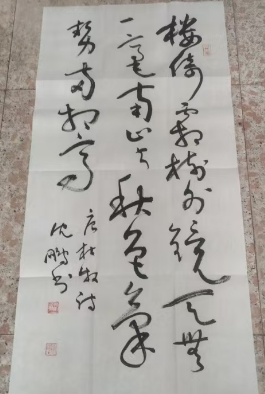 楼倚霜树外镜天无
一毫南山与秋色气
势两相高
唐杜牧诗
沈鹏书